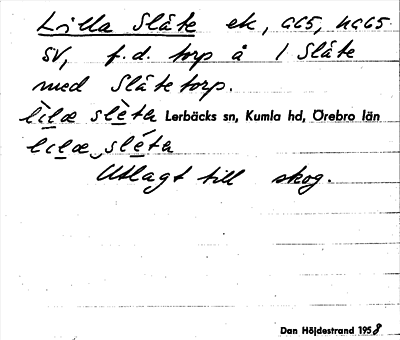 Lilla Slåte ek, GG5, HG65
SV, f.d. torp å 1 Slåte
med Slåtetorp.
Lerbäcks sn, Kumla hd, Örebro län
Utlagt till skog.
Dan Höjdestrand 1958